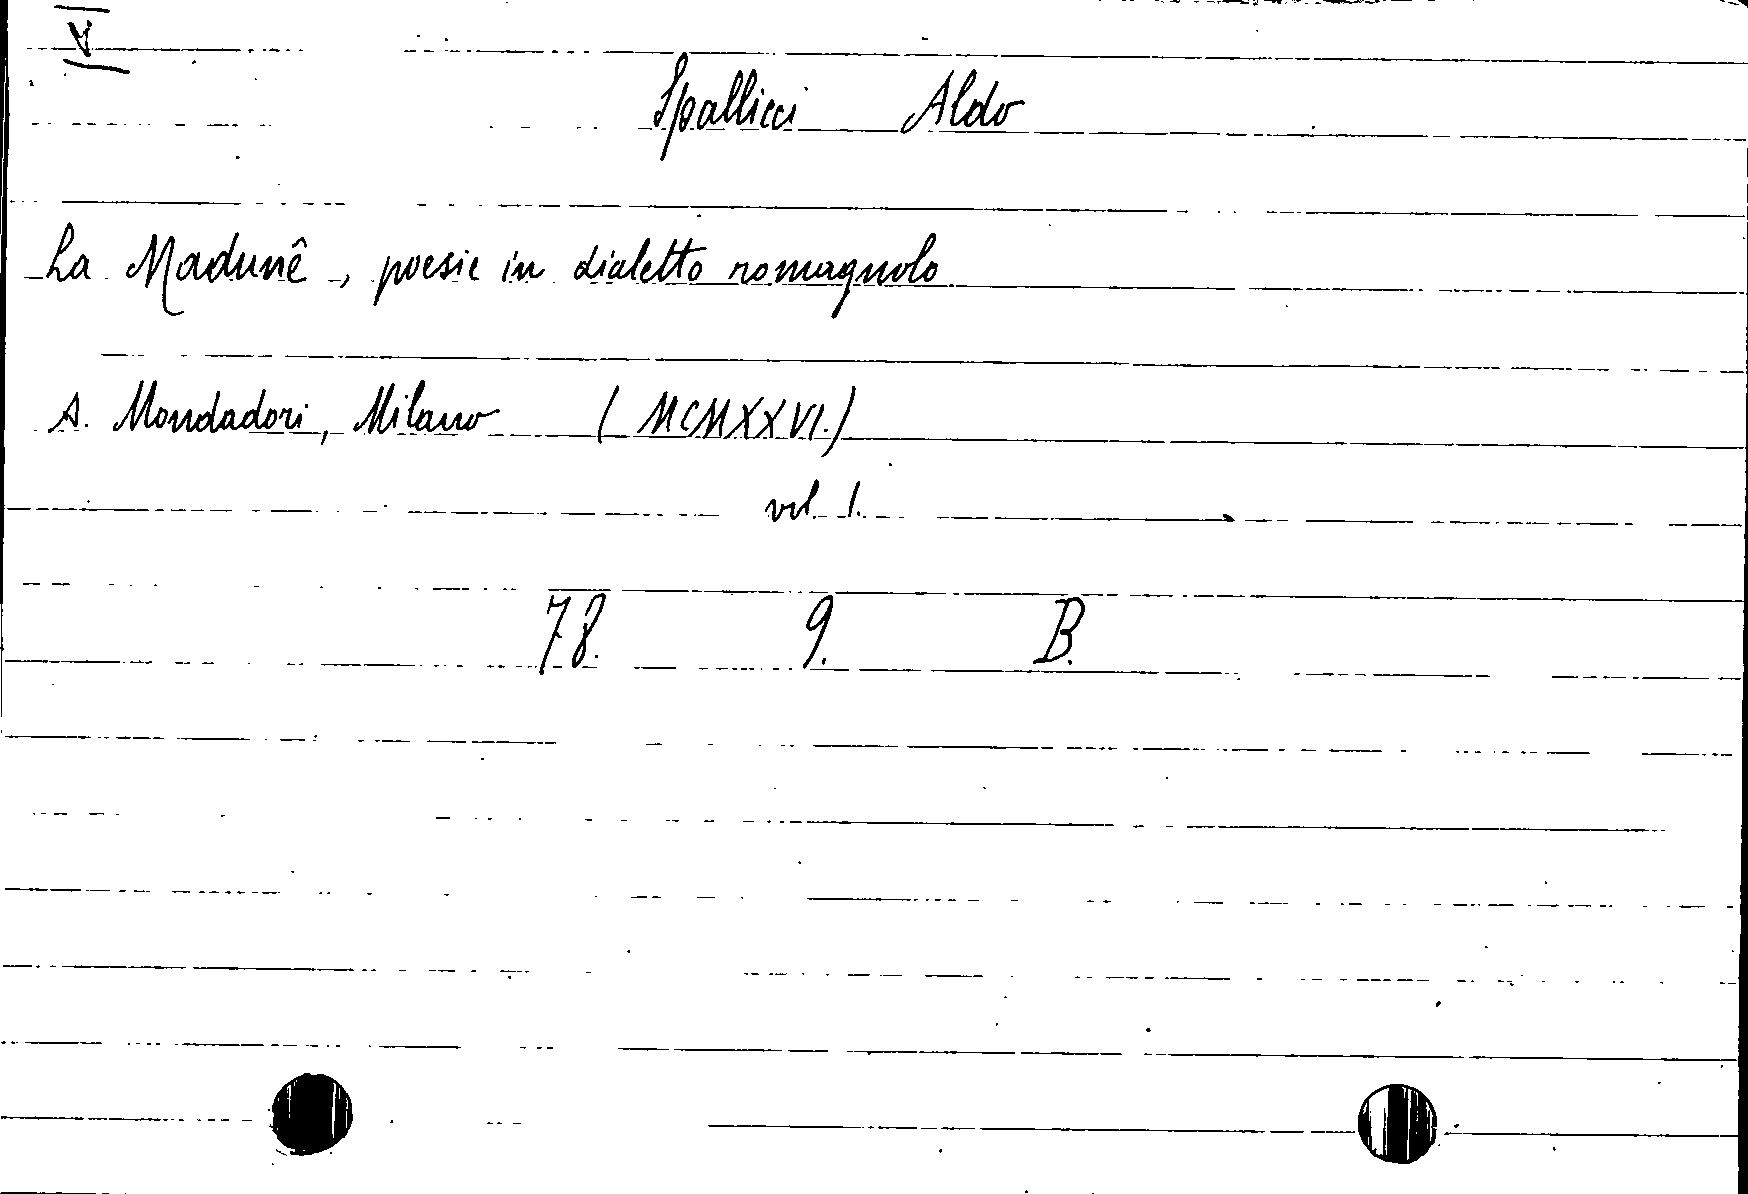 Spallicci Aldo
La Madunê, poesie in dialetto romagnolo
A. Mondadori, Milano (MCMXXVI.)
vol. 1.
78. 9. B.